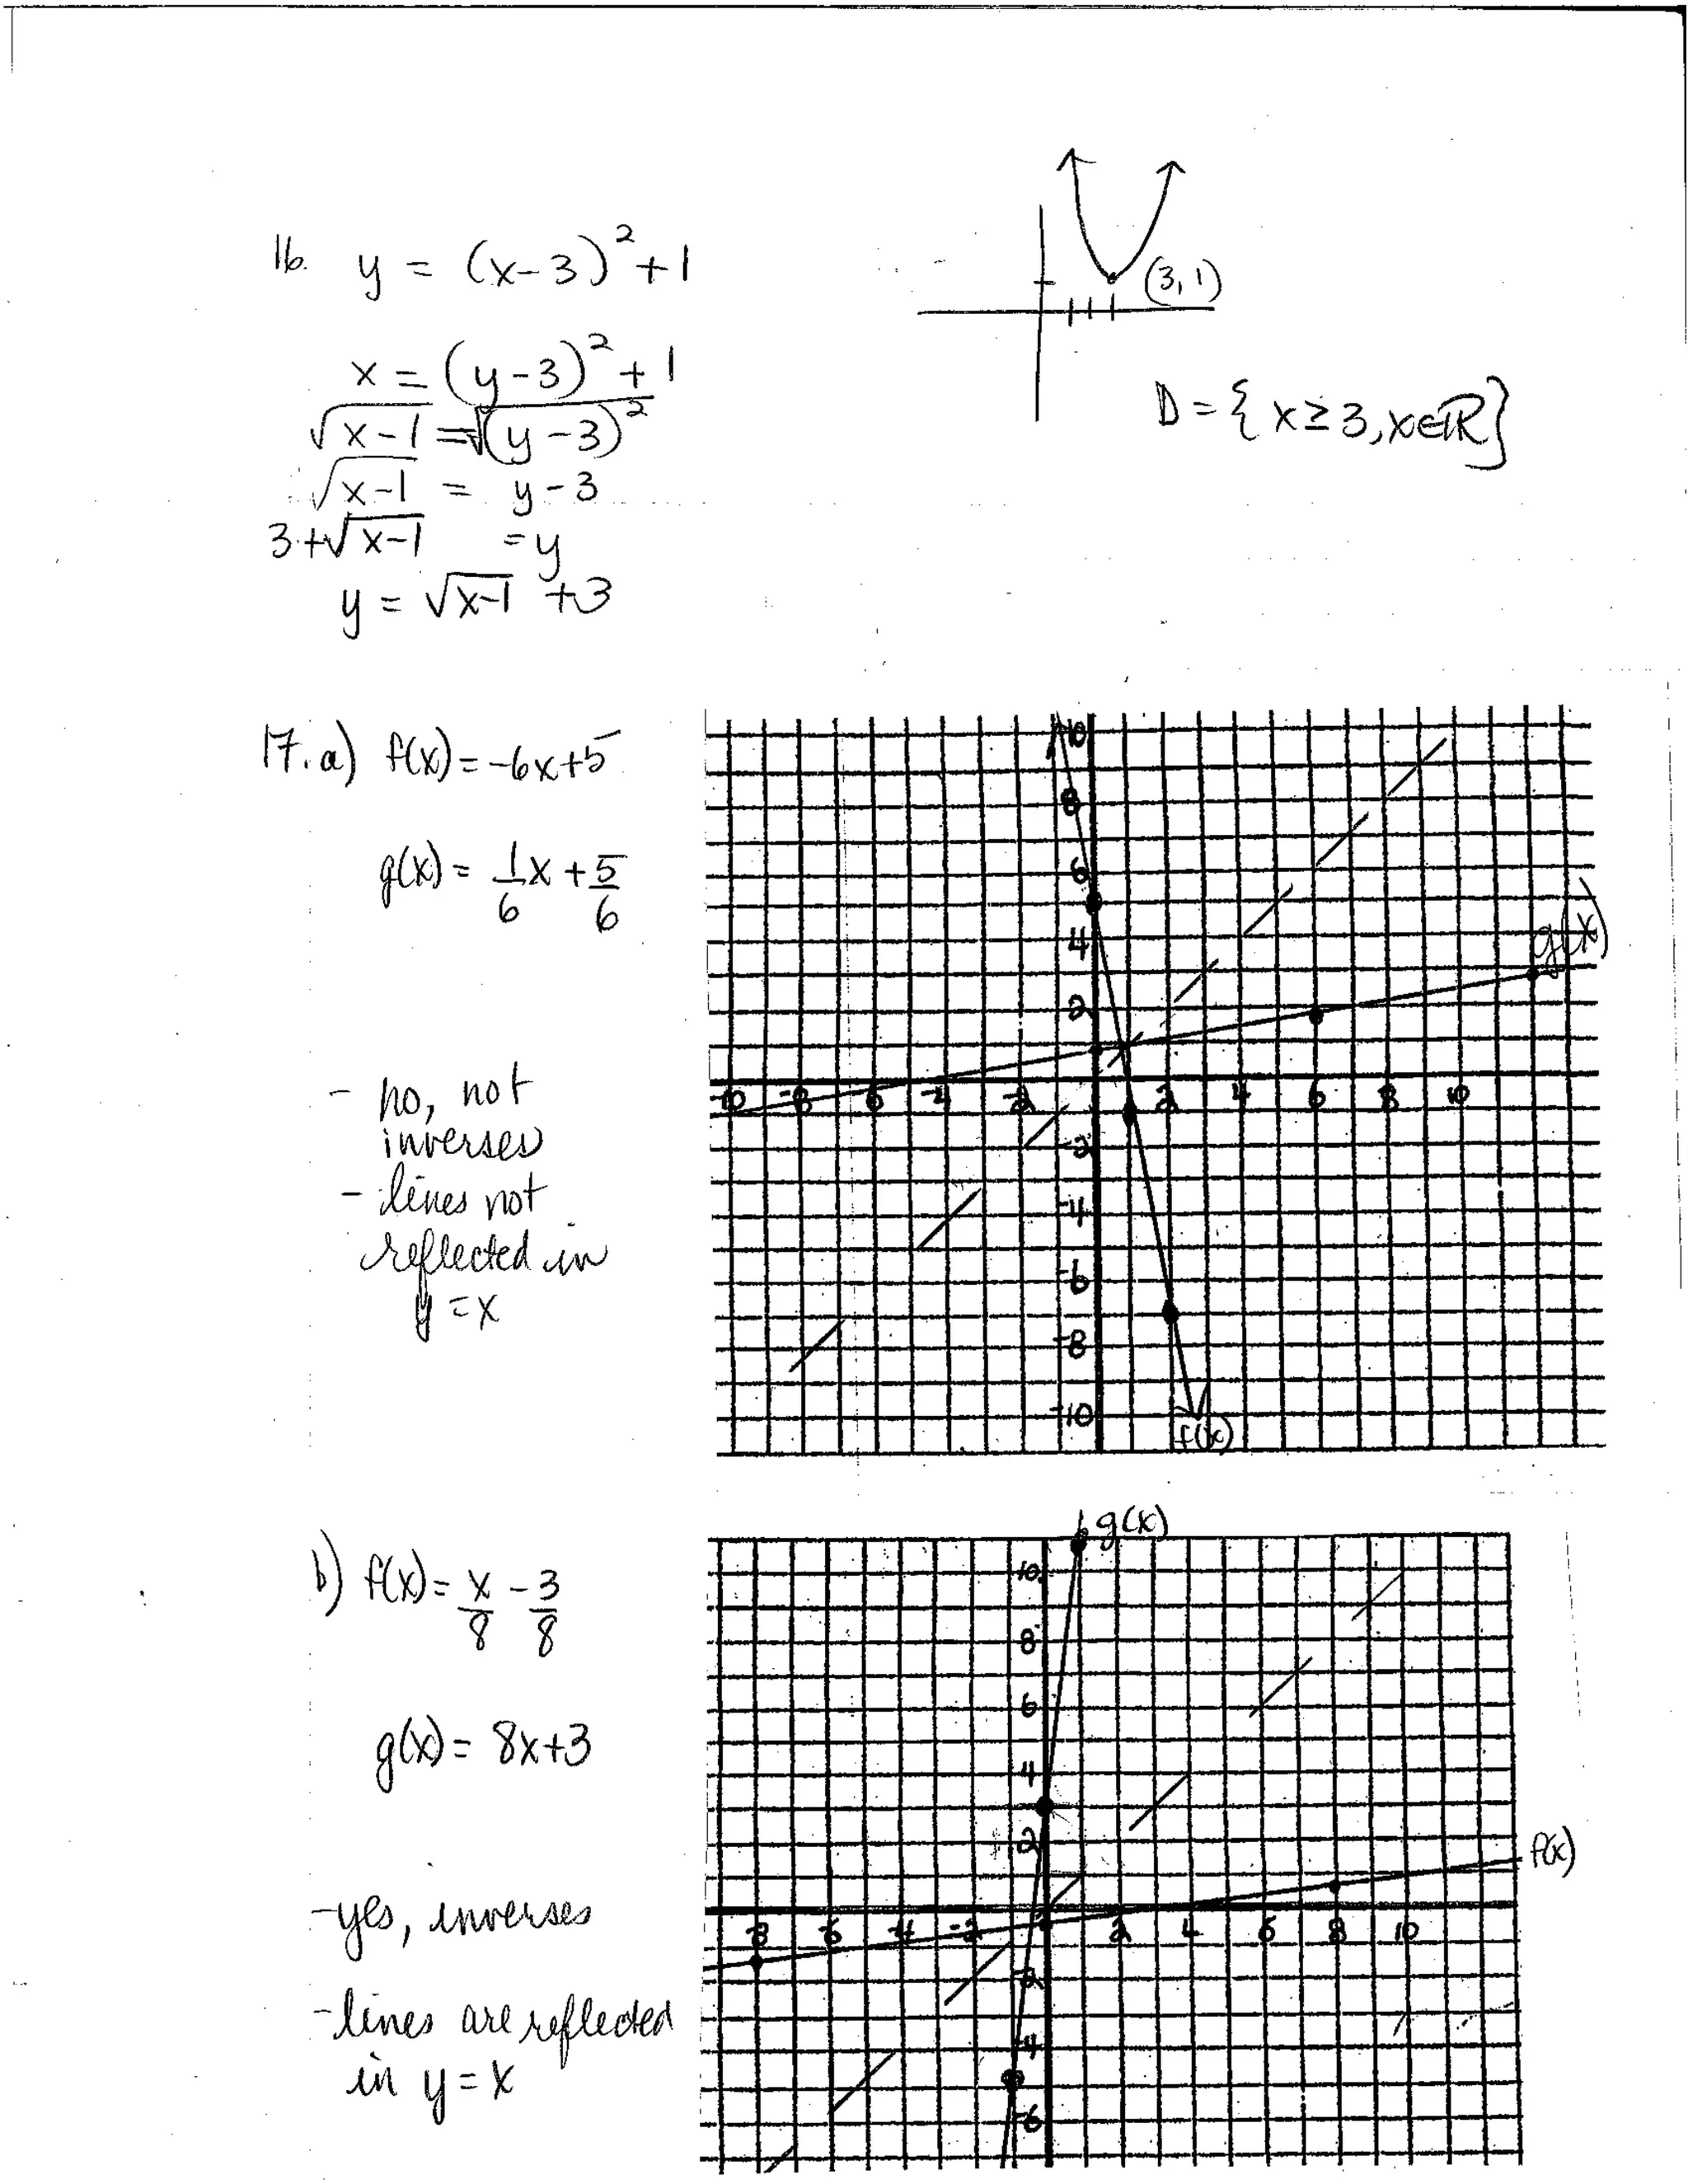 16. y = (x-3)² + 1
(3, 1)
x = (y-3)² + 1
D = { x ≥ 3, x ∈ ℝ }
√(x-1) = √((y-3)²)
√(x-1) = y-3
3+√(x-1) = y
y = √(x-1) + 3
17. a) f(x) = -6x+5
g(x) = 1/6 x + 5/6
- no, not
inverses
- lines not
reflected in
y = x
10
8
6
4
g(x)
2
-10 -8 6 -4 -2 2 4 6 8 10
-2
-4
-6
-8
-10
f(x)
g(x)
b) f(x) = x/8 - 3/8
10
8
6
g(x) = 8x+3
4
2
f(x)
-yes, inverses
-8 -6 -4 -2 2 4 6 8 10
-2
-lines are reflected
in y = x
-4
-6